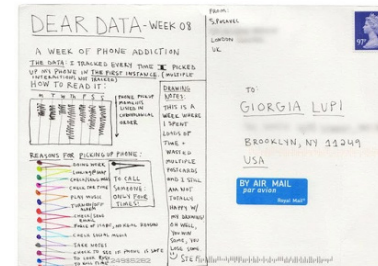 DEAR DATA - WEEK 08
A WEEK OF PHONE ADDICTION
THE DATA: I TRACKED EVERY TIME I PICKED
UP MY PHONE IN THE FIRST INSTANCE. (MULTIPLE
INTERACTIONS NOT TRACKED)
HOW TO READ IT:
M T W TH F S S
PHONE PICKUP
MOMENTS
LISTED IN
CHRONOLOGICAL
ORDER
REASONS FOR PICKING UP PHONE:
CHECK/SEND
CHECK FOR TIME
PLAY MUSIC
ALARM
CHECK/SEND
EMAIL
CHECK SOCIAL MEDIA
CHECK TO SEE IF PHONE IS SAFE
TO KILL TIME
TO CALL
SOMEONE:
ONLY FOUR
TIMES!
DRAWING
NOTES:
THIS IS A
WEEK WHERE
I SPENT
LOADS OF
TIME +
WASTED
MULTIPLE
POSTCARDS
AND I STILL
AM NOT
TOTALLY
HAPPY W/
MY DRAWING!
OH WELL,
YOU WIN
SOME, YOU
LOSE SOME
FROM:
S.POSAVEC
LONDON
UK
97p
TO:
GIORGIA LUPI
BROOKLYN, NY 11249
USA
BY AIR MAIL
par avion
Royal Mail